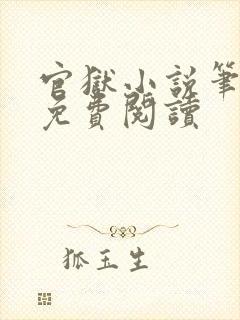 官獄小說筆
免費閱讀
狐玉生